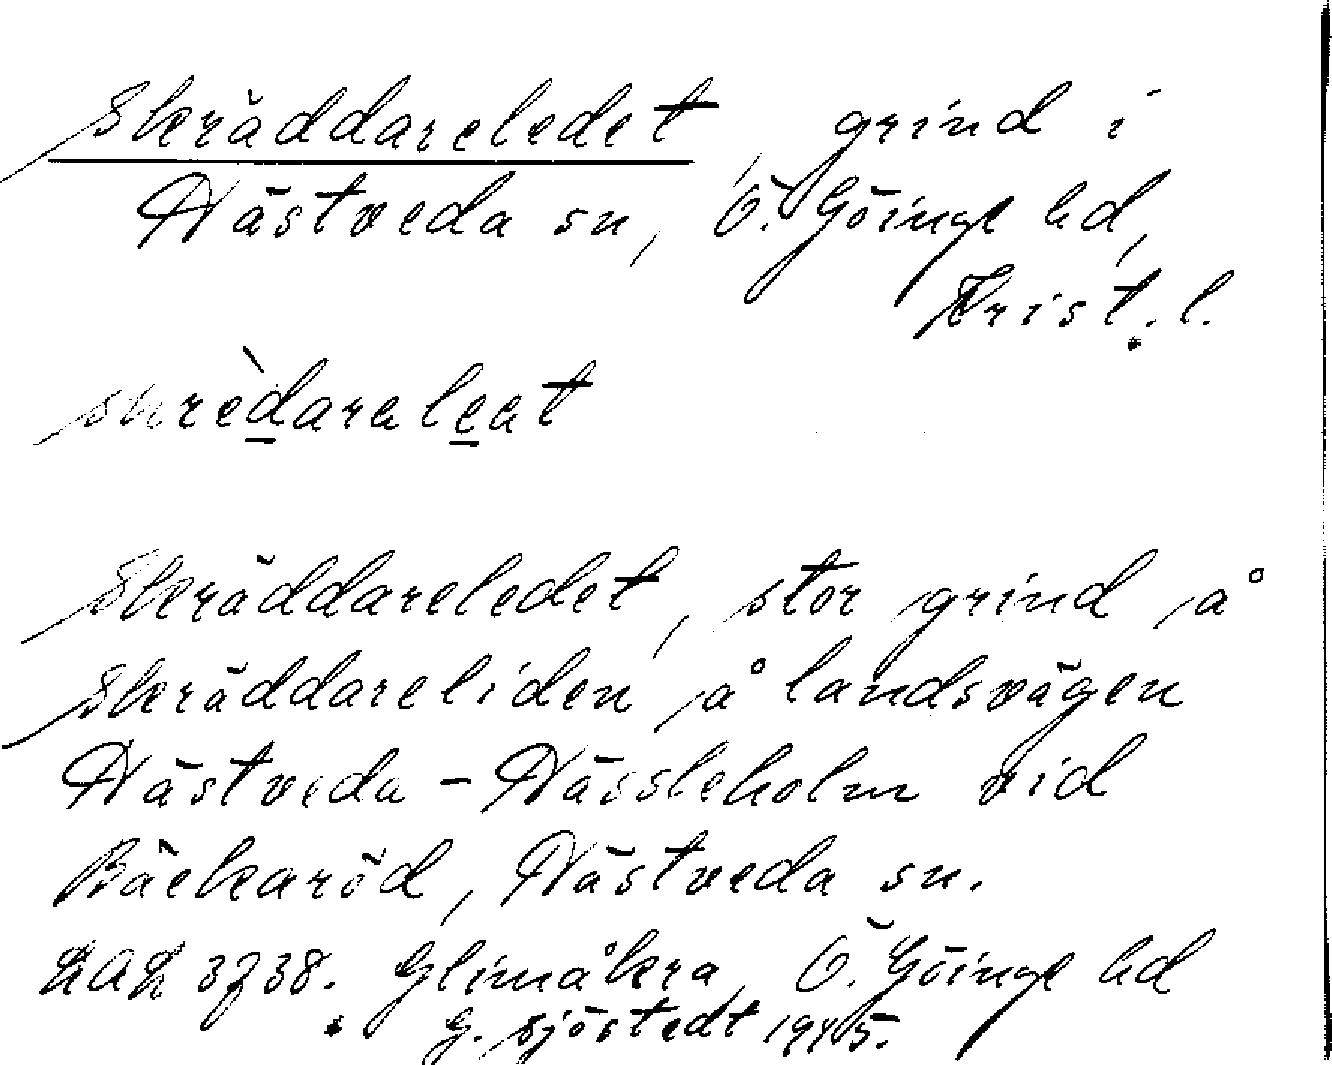 Skräddareledet, grind i
Nästveda sn, Ö. Göinge hd,
Krist. l.
skrèdaraleat
Skräddareledet, stor grind å
Skräddareliden å landsvägen
Nästveda - Hässleholm vid
Bäckaröd, Nästveda sn.
LAL 3738. Glimåkra, Ö. Göinge hd
G. Sjöstedt 1945.